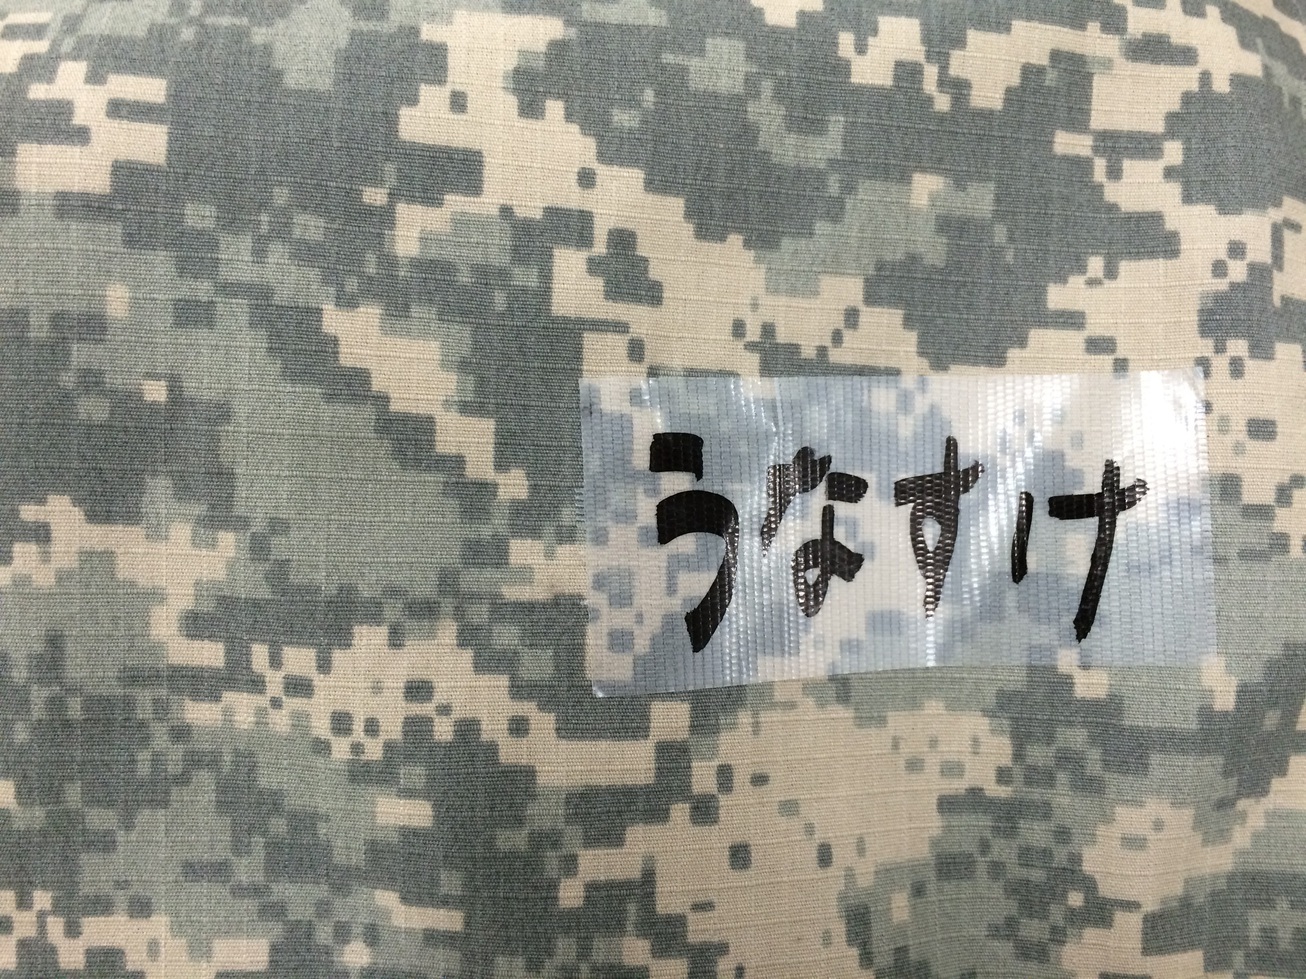 うなすけ